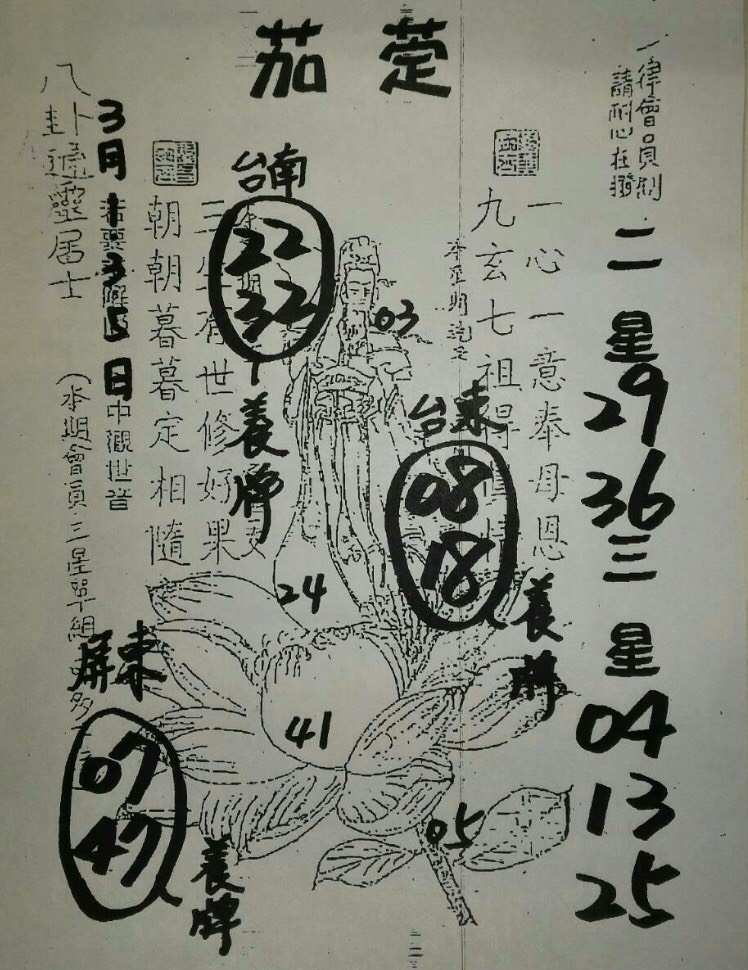 茄萣
一律會員制
請耐心在撥
二星
29
36
三星
04
13
25
一心一意奉母恩
九玄七祖得
台東
08
18
養牌
03
台南
22
32
養牌
世修好果
朝朝暮暮定相隨
24
41
05
3月
5日
中觀世音
八卦通靈居士
(本期會員三星單組
屏東
07
47
養牌